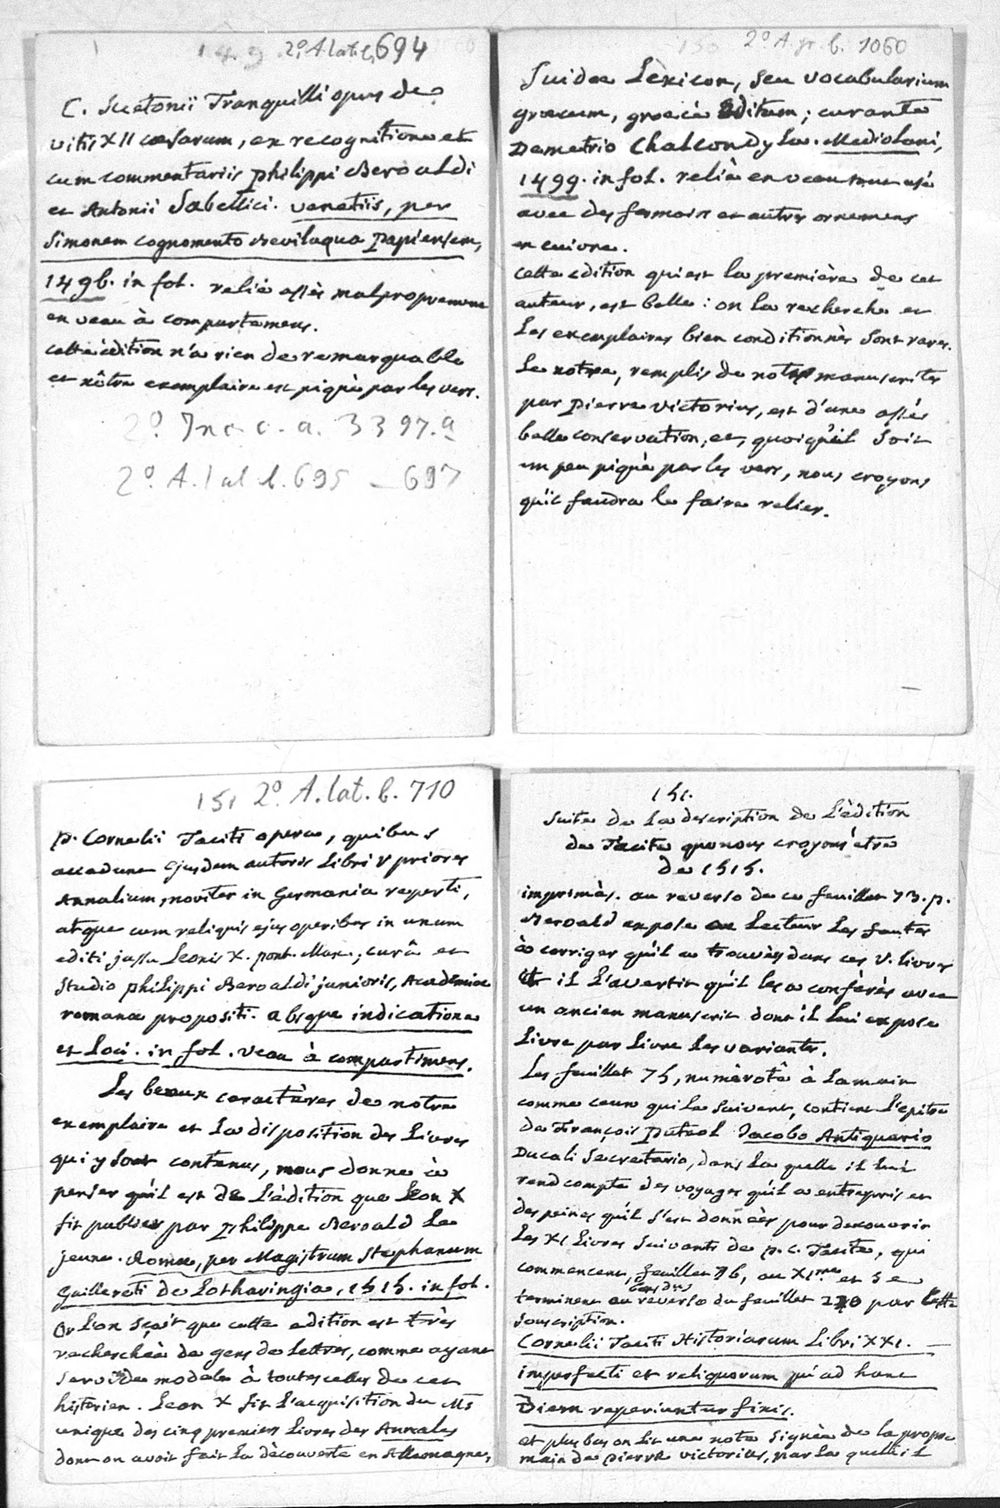 149 2° A.lat.b. 694
C. Suetonii Tranquilli opus de
vitis XII cæsarum, ex recognitione et
cum commentariis philippi Beroaldi
et Antonii Sabellici. venetiis, per
Simonem cognomento Bevilaqua Papiensem,
1496. in fol. relié assés malproprement
en veau à compartimens.
cette édition n'a rien de remarquable
et nôtre exemplaire est piqué par les vers.
2° Inc. c. a. 3397.a
2° A. lat. b. 695 – 697
150 2° A.gr. b. 1060
Suidæ Lexicon, seu vocabularium
græcum, græcè Editum; curante
Demetrio Chalcondyla. Mediolani,
1499. in fol. relié en veau
avec des fermoirs et autres ornemens
en cuivre.
cette edition qui est la première de cet
auteur, est belle: on la recherche et
les exemplaires bien conditionnés sont rares.
Le notre, remplis de notes manuscrites
par pierre victorius, est d'une assés
belle conservation, et, quoiqu'il soit
un peu piqué par les vers, nous croyons
qu'il faudra le faire relier.
151 2° A. lat. b. 710
P. Cornelii Taciti opera, quibus
accedunt Ejusdem autoris Libri V priores
Annalium, noviter in Germania reperti,
atque cum reliquis ejus operibus in unum
editi jussu Leonis X. pont. Max., curâ et
Studio philippi Beroaldi junioris, Academiæ
romanæ propositi. absque indicatione
et Loci. in fol. veau à compartimens.
Les beaux caractères de notre
exemplaire et la disposition des Livres
qui y sont contenus, nous donne à
penser qu'il est de L'édition que Leon X
fit publier par Philippe Beroald Le
jeune. Romæ, per Magistrum Stephanum
Guillereti de Lotharingia, 1515. in fol.
Or Lon sçait que cette edition est très
recherchée de gens de Lettres, comme ayant
servi de modele à toutes celles de cet
historien. Leon X fit l'acquisition du Ms
unique des cinq premiers livres des Annales
dont on avoit fait la découverte en Allemagne,
151.
Suite de la description de L'édition
de Tacite que nous croyons être
de 1515.
imprimés. au reverso de ce feuillet 73. p.
Beroald expose au Lecteur Les fautes
à corriger qu'il a trouvés dans ces V. livres
et il L'avertit qu'il les a conférés avec
un ancien manuscrit dont il lui expose
Livre par Livre Les variantes.
Les feuillet 75, numèroté à la main
comme ceux qui Le suivent, contient L'epitre
de François Puteol Jacobo Antiquario
Ducali Secretario, dans La quelle il lui
rend compte des voyages qu'il a entrepris et
des peines qu'il s'est donnéès pour decouvrir
Les XI Livres Suivants de p. c. Tacite, qui
commencent, feuillet 76, au XIme et se
terminent au reverso du feuillet par cette
souscription.
Cornelii Taciti Historiarum Libri XXI.
imperfecti et reliquorum qui ad hunc
Diem reperiuntur finis.
et plus bas on lit une note signée de la propre
main de pierre victorius, par la quelle il